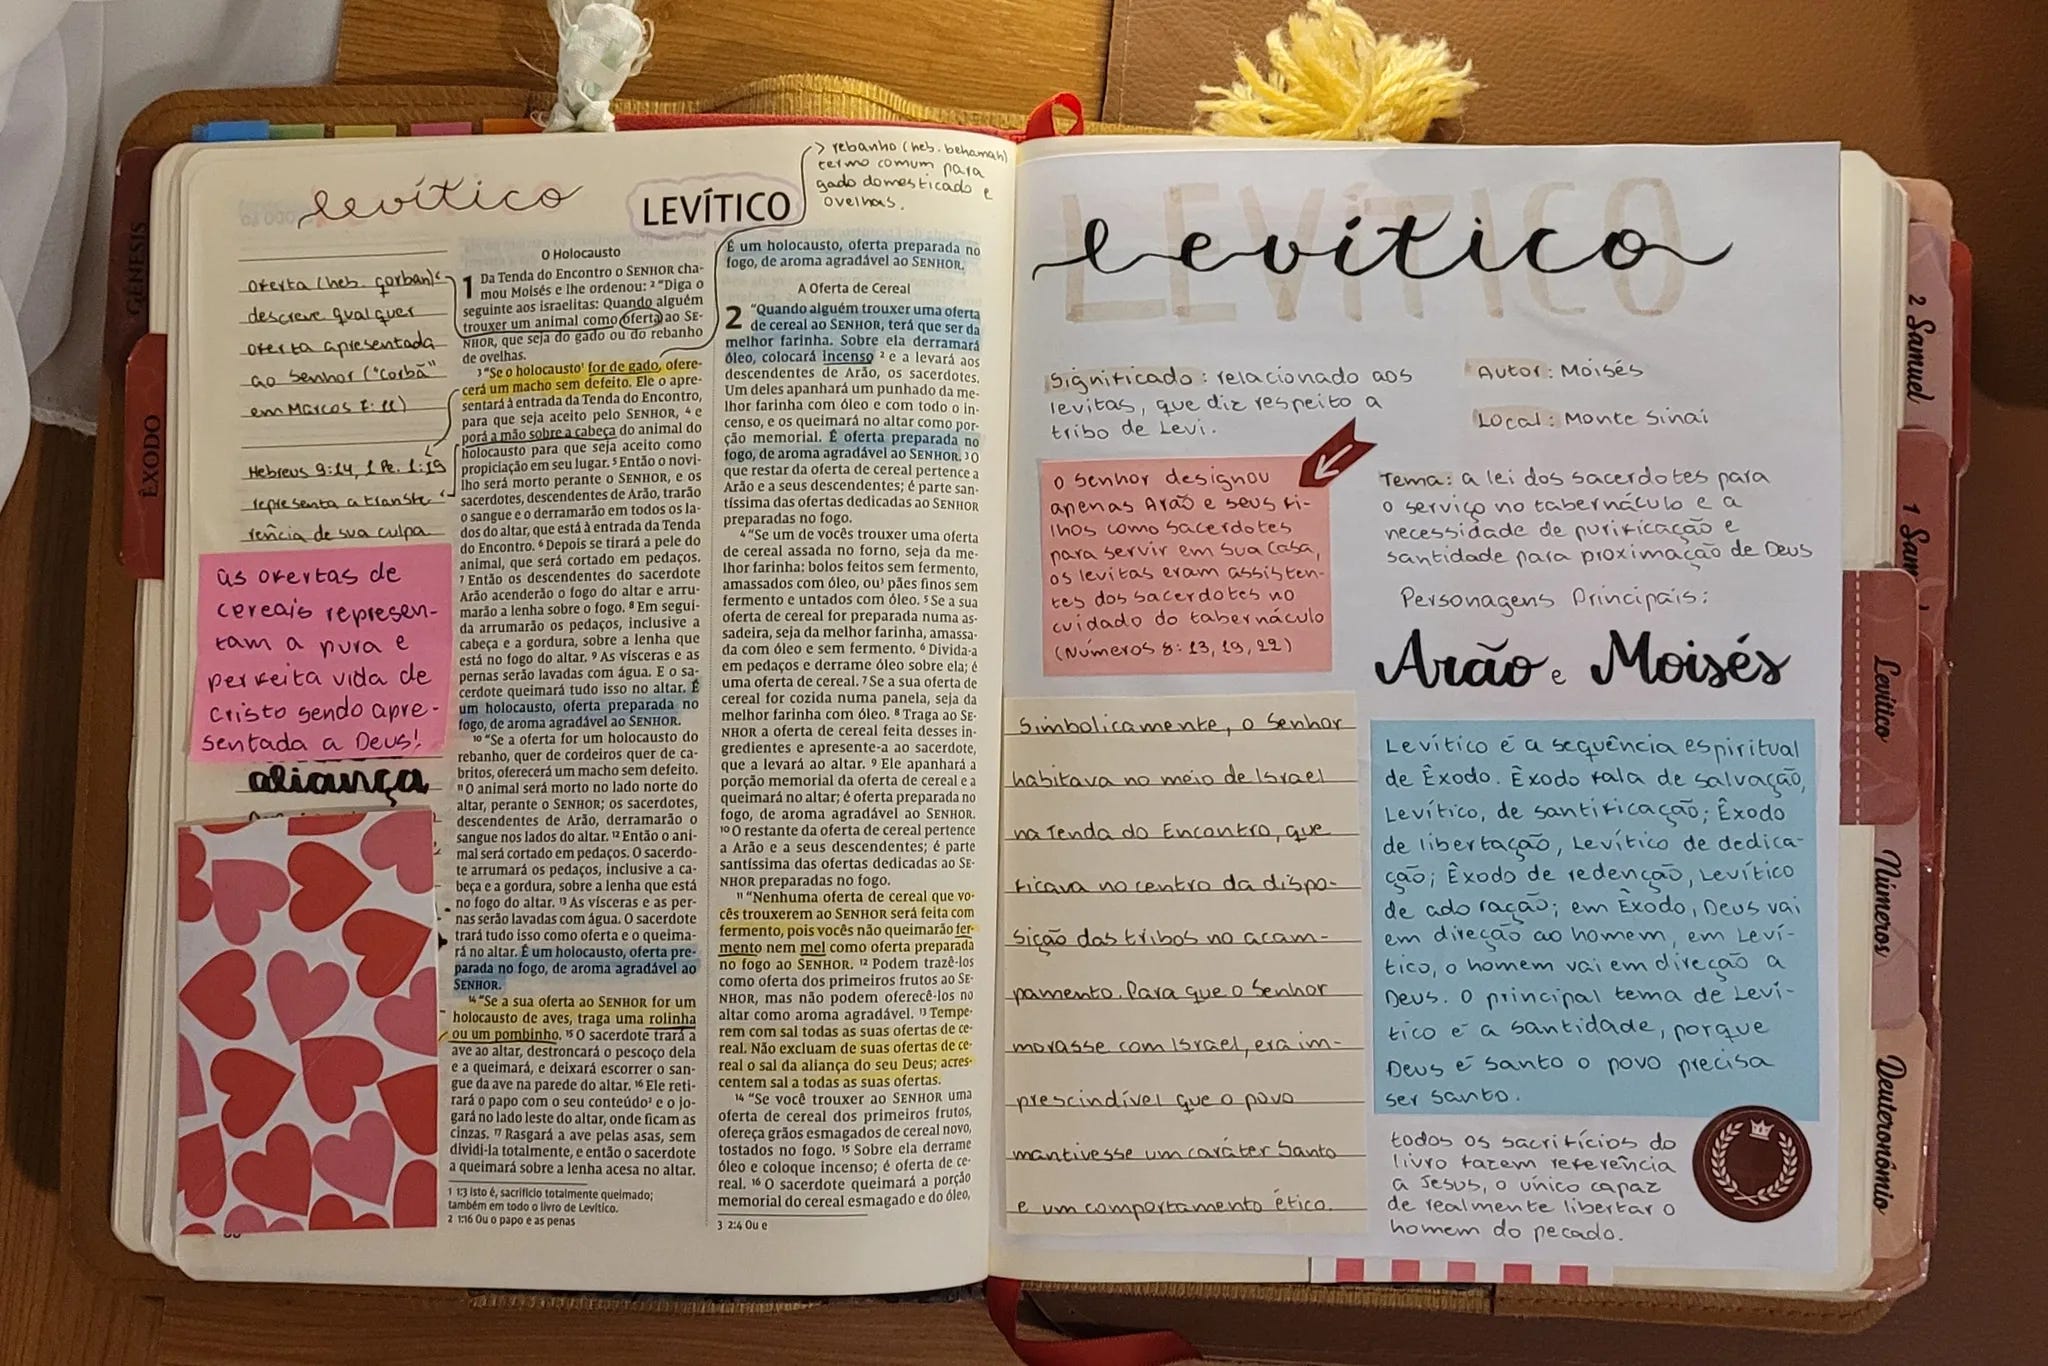 GÊNESIS
ÊXODO
levítico
LEVÍTICO
> rebanho (heb. behamah)
termo comum para
gado domesticado e
ovelhas.
oferta (heb. qorban)
descreve qualquer
oferta apresentada
ao Senhor ("corbã"
em Marcos 7:11)
Hebreus 9:14, 1 Pe. 1:19
representa a transfe-
rência de sua culpa
as ofertas de
cereais represen-
tam a pura e
perfeita vida de
Cristo sendo apre-
sentada a Deus!
aliança
O Holocausto
1 Da Tenda do Encontro o SENHOR cha-
mou Moisés e lhe ordenou: 2 "Diga o
seguinte aos israelitas: Quando alguém
trouxer um animal como oferta ao SE-
NHOR, que seja do gado ou do rebanho
de ovelhas.
3 "Se o holocausto¹ for de gado, ofere-
cerá um macho sem defeito. Ele o apre-
sentará à entrada da Tenda do Encontro,
para que seja aceito pelo SENHOR, 4 e
porá a mão sobre a cabeça do animal do
holocausto para que seja aceito como
propiciação em seu lugar. 5 Então o novi-
lho será morto perante o SENHOR, e os
sacerdotes, descendentes de Arão, trarão
o sangue e o derramarão em todos os la-
dos do altar, que está à entrada da Tenda
do Encontro. 6 Depois se tirará a pele do
animal, que será cortado em pedaços.
7 Então os descendentes do sacerdote
Arão acenderão o fogo do altar e arru-
marão a lenha sobre o fogo. 8 Em segui-
da arrumarão os pedaços, inclusive a
cabeça e a gordura, sobre a lenha que
está no fogo do altar. 9 As vísceras e as
pernas serão lavadas com água. E o sa-
cerdote queimará tudo isso no altar. É
um holocausto, oferta preparada no
fogo, de aroma agradável ao SENHOR.
10 "Se a oferta for um holocausto do
rebanho, quer de cordeiros quer de ca-
britos, oferecerá um macho sem defeito.
11 O animal será morto no lado norte do
altar, perante o SENHOR; os sacerdotes,
descendentes de Arão, derramarão o
sangue nos lados do altar. 12 Então o ani-
mal será cortado em pedaços. O sacerdo-
te arrumará os pedaços, inclusive a ca-
beça e a gordura, sobre a lenha que está
no fogo do altar. 13 As vísceras e as per-
nas serão lavadas com água. O sacerdote
trará tudo isso como oferta e o queima-
rá no altar. É um holocausto, oferta pre-
parada no fogo, de aroma agradável ao
SENHOR.
14 "Se a sua oferta ao SENHOR for um
holocausto de aves, traga uma rolinha
ou um pombinho. 15 O sacerdote trará a
ave ao altar, destroncará o pescoço dela
e a queimará, e deixará escorrer o san-
gue da ave na parede do altar. 16 Ele reti-
rará o papo com o seu conteúdo² e o jo-
gará no lado leste do altar, onde ficam as
cinzas. 17 Rasgará a ave pelas asas, sem
dividi-la totalmente, e então o sacerdote
a queimará sobre a lenha acesa no altar.
1 1:3 Isto é, sacrifício totalmente queimado;
também em todo o livro de Levítico.
2 1:16 Ou o papo e as penas
É um holocausto, oferta preparada no
fogo, de aroma agradável ao SENHOR.
A Oferta de Cereal
2 "Quando alguém trouxer uma oferta
de cereal ao SENHOR, terá que ser da
melhor farinha. Sobre ela derramará
óleo, colocará incenso 2 e a levará aos
descendentes de Arão, os sacerdotes.
Um deles apanhará um punhado da me-
lhor farinha com óleo e com todo o in-
censo, e os queimará no altar como por-
ção memorial. É oferta preparada no
fogo, de aroma agradável ao SENHOR. 3 O
que restar da oferta de cereal pertence a
Arão e a seus descendentes; é parte san-
tíssima das ofertas dedicadas ao SENHOR
preparadas no fogo.
4 "Se um de vocês trouxer uma oferta
de cereal assada no forno, seja da me-
lhor farinha: bolos feitos sem fermento,
amassados com óleo, ou³ pães finos sem
fermento e untados com óleo. 5 Se a sua
oferta de cereal for preparada numa as-
sadeira, seja da melhor farinha, amassa-
da com óleo e sem fermento. 6 Divida-a
em pedaços e derrame óleo sobre ela; é
uma oferta de cereal. 7 Se a sua oferta de
cereal for cozida numa panela, seja da
melhor farinha com óleo. 8 Traga ao SE-
NHOR a oferta de cereal feita desses in-
gredientes e apresente-a ao sacerdote,
que a levará ao altar. 9 Ele apanhará a
porção memorial da oferta de cereal e a
queimará no altar; é oferta preparada no
fogo, de aroma agradável ao SENHOR.
10 O restante da oferta de cereal pertence
a Arão e a seus descendentes; é parte
santíssima das ofertas dedicadas ao SE-
NHOR preparadas no fogo.
11 "Nenhuma oferta de cereal que vo-
cês trouxerem ao SENHOR será feita com
fermento, pois vocês não queimarão fer-
mento nem mel como oferta preparada
no fogo ao SENHOR. 12 Podem trazê-los
como oferta dos primeiros frutos ao SE-
NHOR, mas não podem oferecê-los no
altar como aroma agradável. 13 Tempe-
rem com sal todas as suas ofertas de ce-
real. Não excluam de suas ofertas de ce-
real o sal da aliança do seu Deus; acres-
centem sal a todas as suas ofertas.
14 "Se você trouxer ao SENHOR uma
oferta de cereal dos primeiros frutos,
ofereça grãos esmagados de cereal novo,
tostados no fogo. 15 Sobre ela derrame
óleo e coloque incenso; é oferta de ce-
real. 16 O sacerdote queimará a porção
memorial do cereal esmagado e do óleo,
3 2:4 Ou e
LEVÍTICO
levítico
Significado: relacionado aos
levitas, que diz respeito a
tribo de Levi.
Autor: Moisés
Local: Monte Sinai
O Senhor designou
apenas Arão e seus fi-
lhos como sacerdotes
para servir em sua casa,
os levitas eram assisten-
tes dos sacerdotes no
cuidado do tabernáculo
(Números 8: 13, 19, 22)
Tema: a lei dos sacerdotes para
o serviço no tabernáculo e a
necessidade de purificação e
santidade para proximação de Deus
Personagens Principais:
Arão e Moisés
Simbolicamente, o Senhor
habitava no meio de Israel
na Tenda do Encontro, que
ficava no centro da dispo-
sição das tribos no acam-
pamento. Para que o Senhor
morasse com Israel, era im-
prescindível que o povo
mantivesse um caráter Santo
e um comportamento ético.
Levítico é a sequência espiritual
de Êxodo. Êxodo fala de salvação,
Levítico, de santificação; Êxodo
de libertação, Levítico de dedica-
ção; Êxodo de redenção, Levítico
de adoração; em Êxodo, Deus vai
em direção ao homem, em Leví-
tico, o homem vai em direção a
Deus. O principal tema de Leví-
tico é a santidade, porque
Deus é santo o povo precisa
ser santo.
todos os sacrifícios do
livro fazem referência
a Jesus, o único capaz
de realmente libertar o
homem do pecado.
2 Samuel
1 Sam
Levítico
Números
Deuteronômio